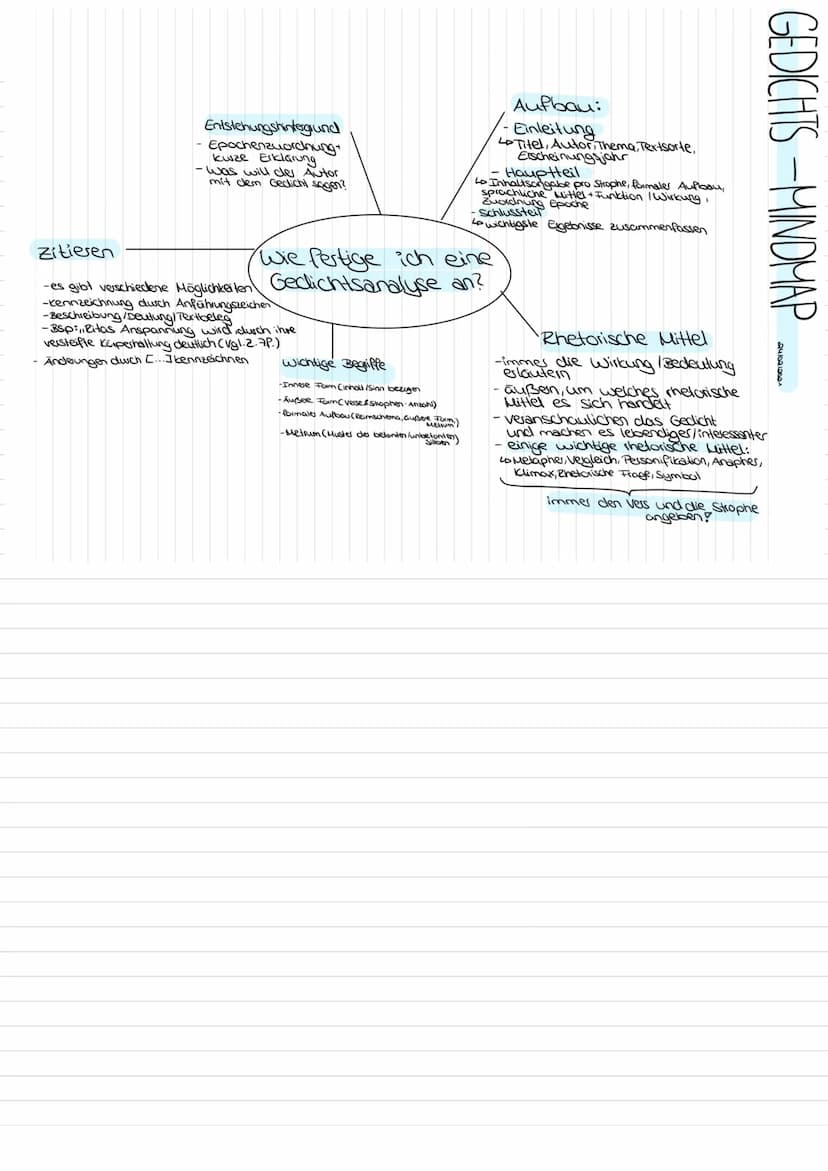 GEDICHTS - MINDMAP
Wie fertige ich eine
Gedichtsanalyse an?
Entstehungshintegrund
- Epochenzuordnung+
kurze Erklärung
- Was will der Autor
mit dem Gedicht sagen?
Aufbau:
- Einleitung
↳ Titel, Autor, Thema, Textsorte,
Erscheinungsjahr
- Hauptteil
↳ Inhaltsangabe pro Strophe, formaler Aufbau,
sprachliche Mittel + Funktion / Wirkung,
Zuordnung Epoche
- Schlussteil
↳ wichtigste Ergebnisse zusammenfassen
Zitieren
- es gibt verschiedene Möglichkeiten
- Kennzeichnung durch Anführungszeichen
- Beschreibung/Deutung/Textbeleg
- Bsp: „Ritas Anspannung wird durch ihre
versteifte Körperhaltung deutlich (vgl. Z. 7f.)
- Änderungen durch [...] kennzeichnen
Wichtige Begriffe
- Innere Form (Inhalt/Sinn bezogen
- Äußere Form (Verse & Strophen - Anzahl)
- formaler Aufbau (Reimschema, äußere Form,
Metrum)
- Metrum (Muster der betonten/unbetonten)
Silben
Rhetorische Mittel
- immer die Wirkung / Bedeutung
erläutern
- äußern, um welches rhetorische
Mittel es sich handelt
- veranschaulichen das Gedicht
und machen es lebendiger/interessanter
- einige wichtige rhetorische Mittel:
↳ Metapher, Vergleich, Personifikation, Anapher,
Klimax, Rhetorische Frage, Symbol
immer den Vers und die Strophe
angeben!